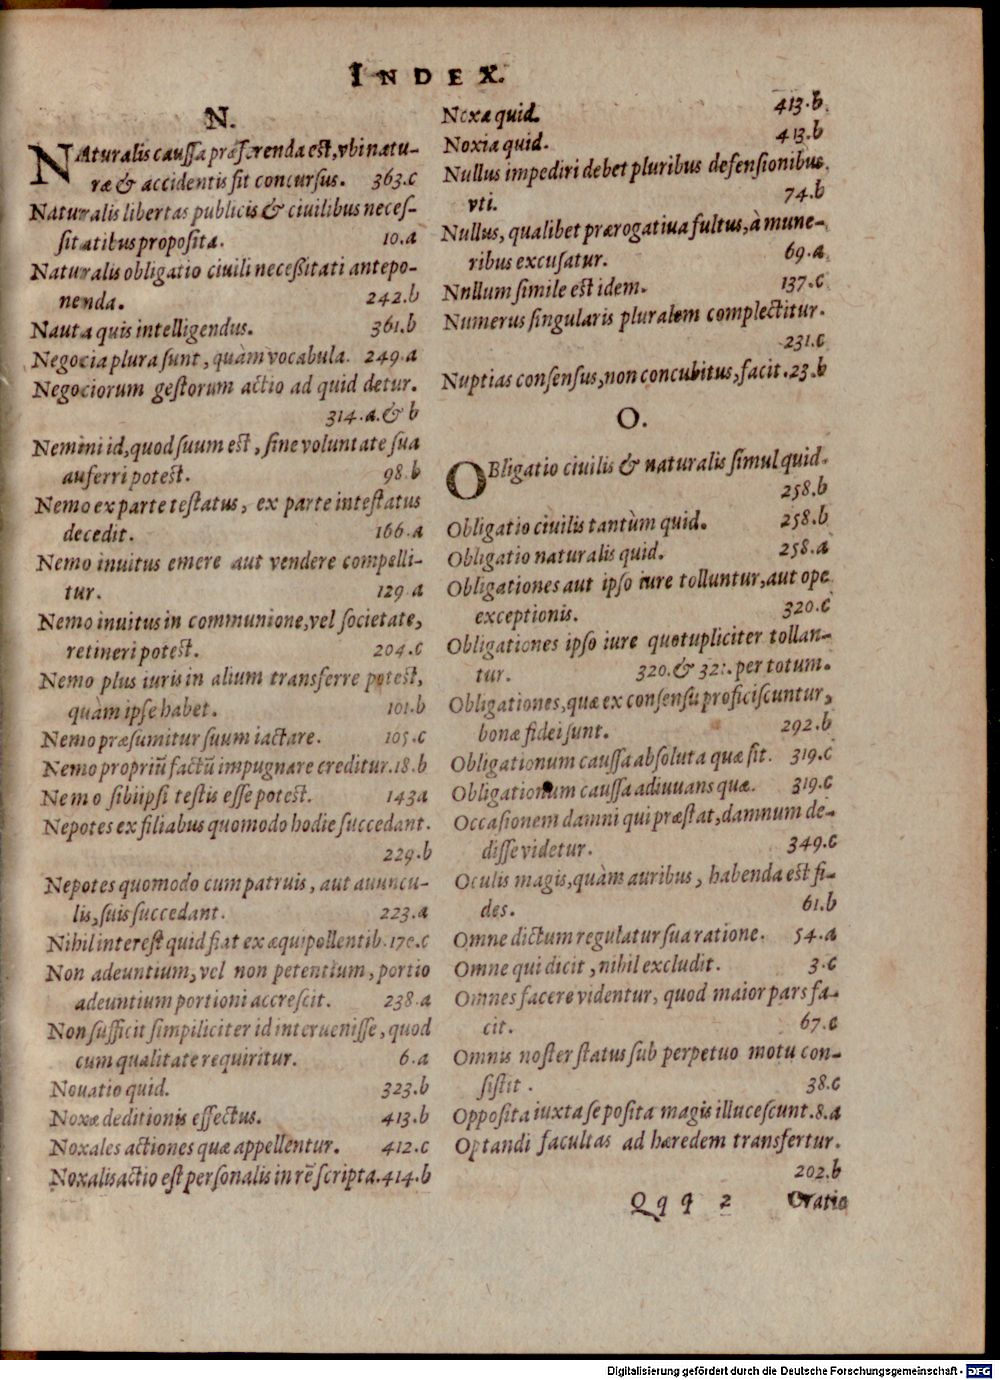 INDEX.
N.
NAturalis caussa præferenda est, vbi natu-
ræ & accidentis fit concursus. 363.c
Naturalis libertas publicis & ciuilibus neces-
sitatibus proposita. 10.a
Naturalis obligatio ciuili necessitati antepo-
nenda. 242.b
Nauta quis intelligendus. 361.b
Negocia plura sunt, quàm vocabula. 249.a
Negociorum gestorum actio ad quid detur.
314.a.& b
Nemini id, quod suum est, sine voluntate sua
auferri potest. 98.b
Nemo ex parte testatus, ex parte intestatus
decedit. 166.a
Nemo inuitus emere aut vendere compelli-
tur. 129.a
Nemo inuitus in communione, vel societate,
retineri potest. 204.c
Nemo plus iuris in alium transferre potest,
quàm ipse habet. 101.b
Nemo præsumitur suum iactare. 105.c
Nemo propriũ factũ impugnare creditur. 18.b
Nemo sibiipsi testis esse potest. 143a
Nepotes ex filiabus quomodo hodie succedant.
229.b
Nepotes quomodo cum patruis, aut auuncu-
lis, suis succedant. 223.a
Nihil interest quid fiat ex æquipollentib. 170.c
Non adeuntium, vel non petentium, portio
adeuntium portioni accrescit. 238.a
Non sufficit simpiliciter id interuenisse, quod
cum qualitate requiritur. 6.a
Nouatio quid. 323.b
Noxæ deditionis effectus. 413.b
Noxales actiones quæ appellentur. 412.c
Noxalis actio est personalis in rē scripta. 414.b
Noxæ quid. 413.b
Noxia quid. 413.b
Nullus impediri debet pluribus defensionibus
vti. 74.b
Nullus, qualibet prærogatiua fultus, à mune-
ribus excusatur. 69.a
Nnllum simile est idem. 137.c
Numerus singularis pluralem complectitur.
231.c
Nuptias consensus, non concubitus, facit. 23.b
O.
OBligatio ciuilis & naturalis simul quid.
258.b
Obligatio ciuilis tantùm quid. 258.b
Obligatio naturalis quid. 258.a
Obligationes aut ipso iure tolluntur, aut ope
exceptionis. 320.c
Obligationes ipso iure quotupliciter tollan-
tur. 320.& 321. per totum.
Obligationes, quæ ex consensu proficiscuntur,
bonæ fidei sunt. 292.b
Obligationum caussa absoluta quæ sit. 319.c
Obligationum caussa adiuuans quæ. 319.c
Occasionem damni qui præstat, damnum de-
disse videtur. 349.c
Oculis magis, quàm auribus, habenda est fi-
des. 61.b
Omne dictum regulatur sua ratione. 54.a
Omne qui dicit, nihil excludit. 3.c
Omnes facere videntur, quod maior pars fa-
cit. 67.c
Omnis noster status sub perpetuo motu con-
sistit. 38.c
Opposita iuxta se posita magis illucescunt. 8.a
Optandi facultas ad hæredem transfertur.
202.b
Qqq 2 Oratio
Digitalisierung gefördert durch die Deutsche Forschungsgemeinschaft - DFG